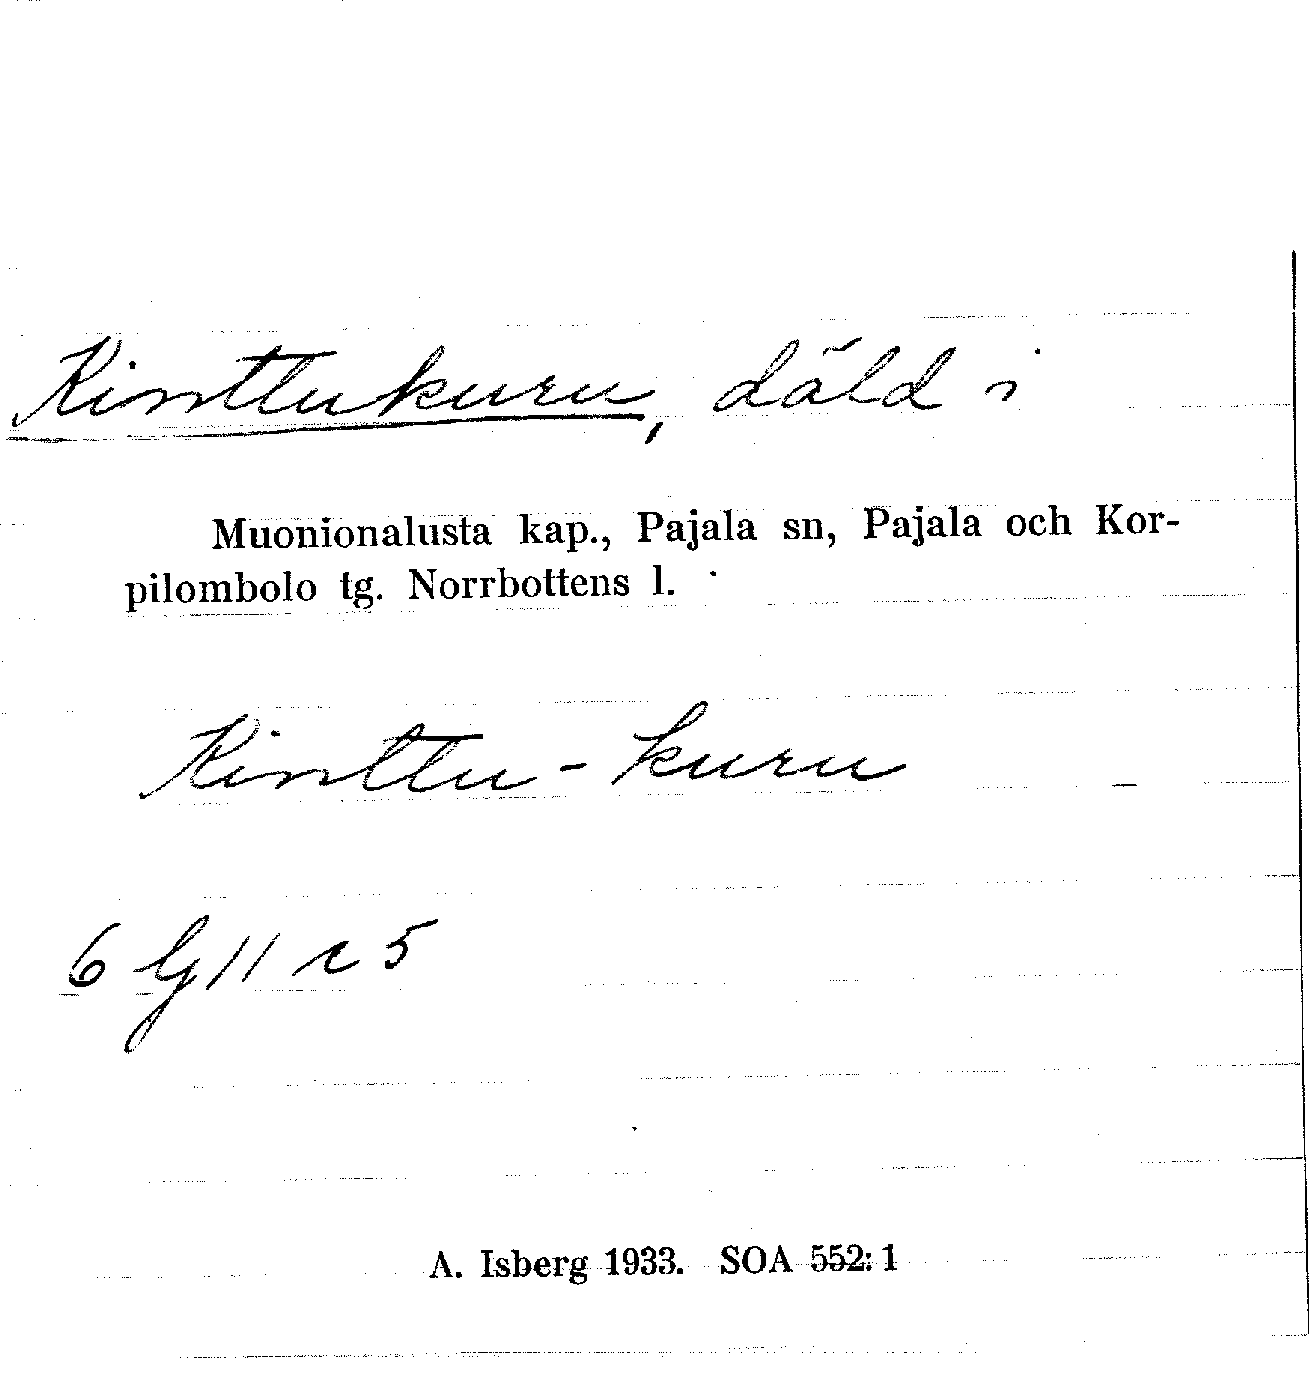 Kinttukuru, däld i
Muonionalusta kap., Pajala sn, Pajala och Kor-
pilombolo tg. Norrbottens l.
Kinttu - kuru
6 11 c 5
A. Isberg 1933. SOA 552:1